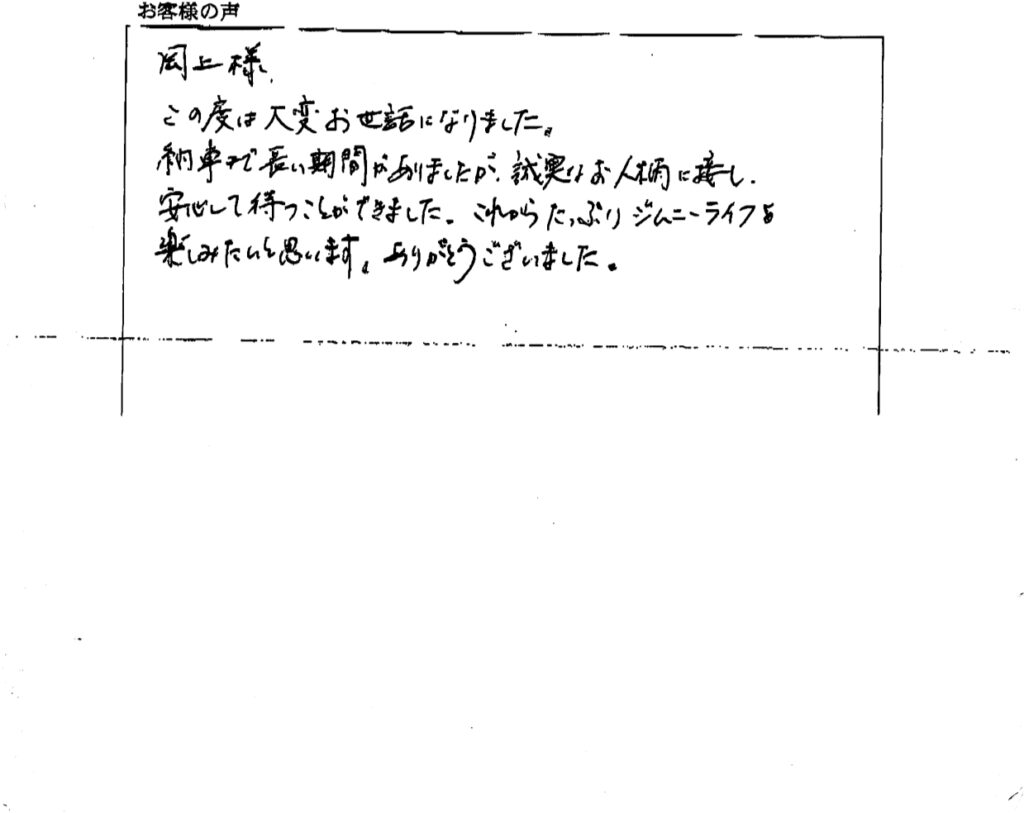 お客様の声
岡上様、
この度は大変お世話になりました。
納車まで長い期間がありましたが、誠実なお人柄に接し、
安心して待つことができました。これからたっぷりジムニーライフを
楽しみたいと思います。ありがとうございました。